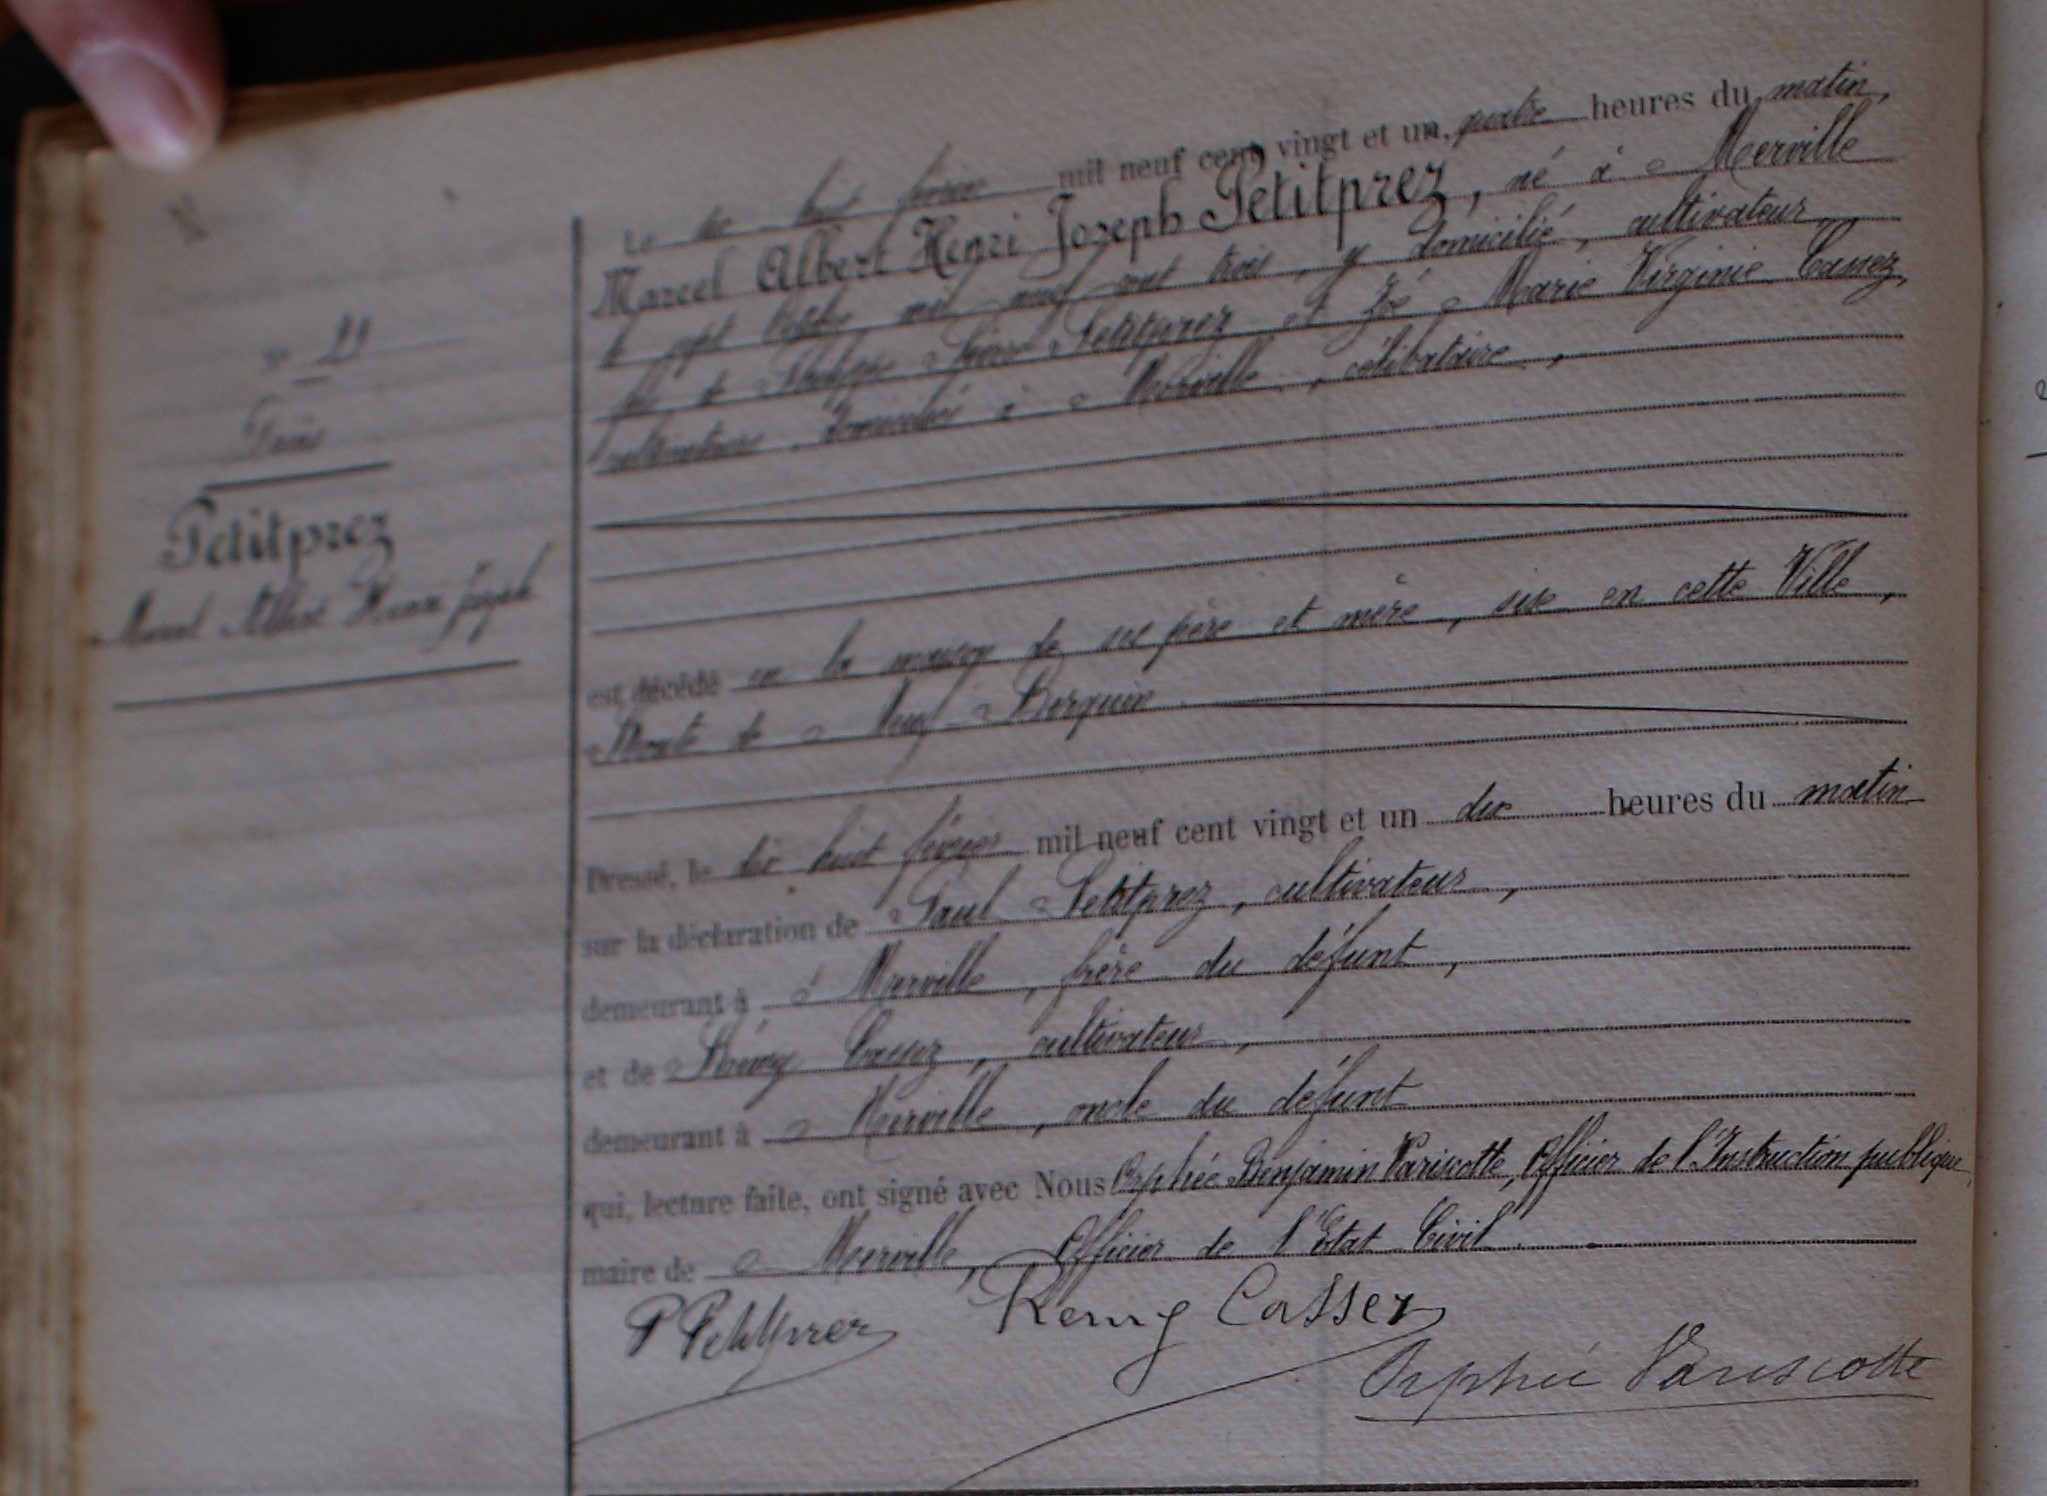 Le dix huit février mil neuf cent vingt et un, quatre heures du matin,
Marcel Albert Henri Joseph Petitprez, né à Merville
le sept mil neuf cent trois, y domicilié, cultivateur,
fils de Pierre Petitprez et Zoé Marie Virginie Cassez,
cultivateurs domiciliés à Merville, célibataire,
N° 21
Décès
Petitprez
Marcel Albert Henri Joseph
est décédé en la maison de ses père et mère, sise en cette Ville,
Route de Neuf Berquin.
Dressé, le dix huit février mil neuf cent vingt et un dix heures du matin
sur la déclaration de Paul Petitprez, cultivateur,
demeurant à Merville, frère du défunt,
et de Rémy Cassez, cultivateur,
demeurant à Merville, oncle du défunt
qui, lecture faite, ont signé avec Nous Orphée Benjamin Variscotte, Officier de l'Instruction publique,
maire de Merville, Officier de l'Etat Civil.
P Petitprez Remy Cassez
Orphée Variscotte